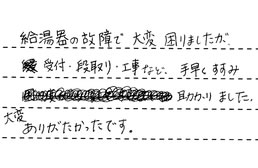 給湯器の故障で 大変 困りましたが、
受付・段取り・工事など、手早くすすみ
助かりました。
大変
ありがたかったです。